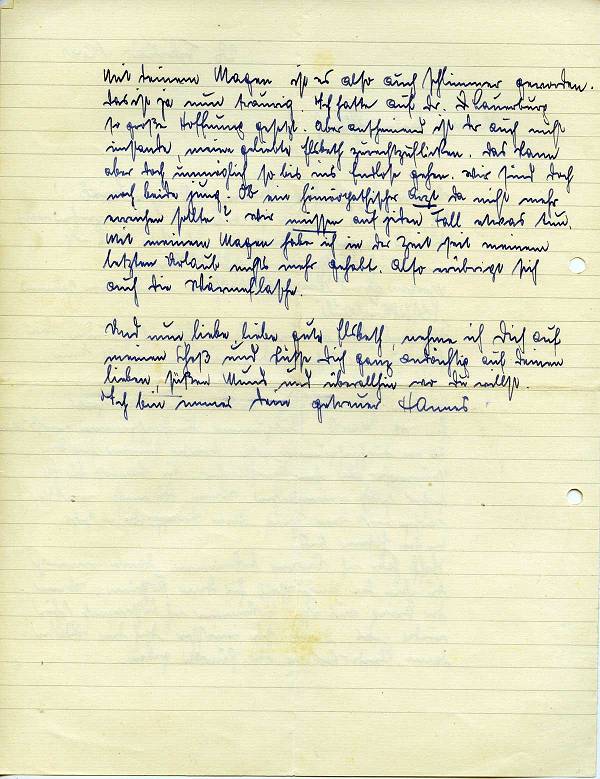 Mit deinem Magen ist es also auch schlimmer geworden.
Das ist ja nun traurig. Ich hatte auf Dr. Lauerburg
so große Hoffnung gesetzt. Aber anscheinend ist der auch nicht
imstande meine geliebte Elsbeth zurechtzuflicken. Das kann
aber doch unmöglich so bis ins Endlose gehen. Wir sind doch
noch beide jung. Ob ein homöopathischer Arzt da nicht mehr
erreichen sollte? Wir müssen auf jeden Fall etwas tun.
Mit meinem Magen habe ich in der Zeit seit meinem
letzten Urlaub nichts mehr gehabt. Also erübrigt sich
auch die Wärmflasche.
Und nun liebe, liebe gute Elsbeth, nehme ich Dich auf
meinen Schoß und küsse Dich ganz andächtig auf deinen
lieben, süßen Mund und überallhin wo Du willst.
Ich bin immer Dein getreuer Hannes